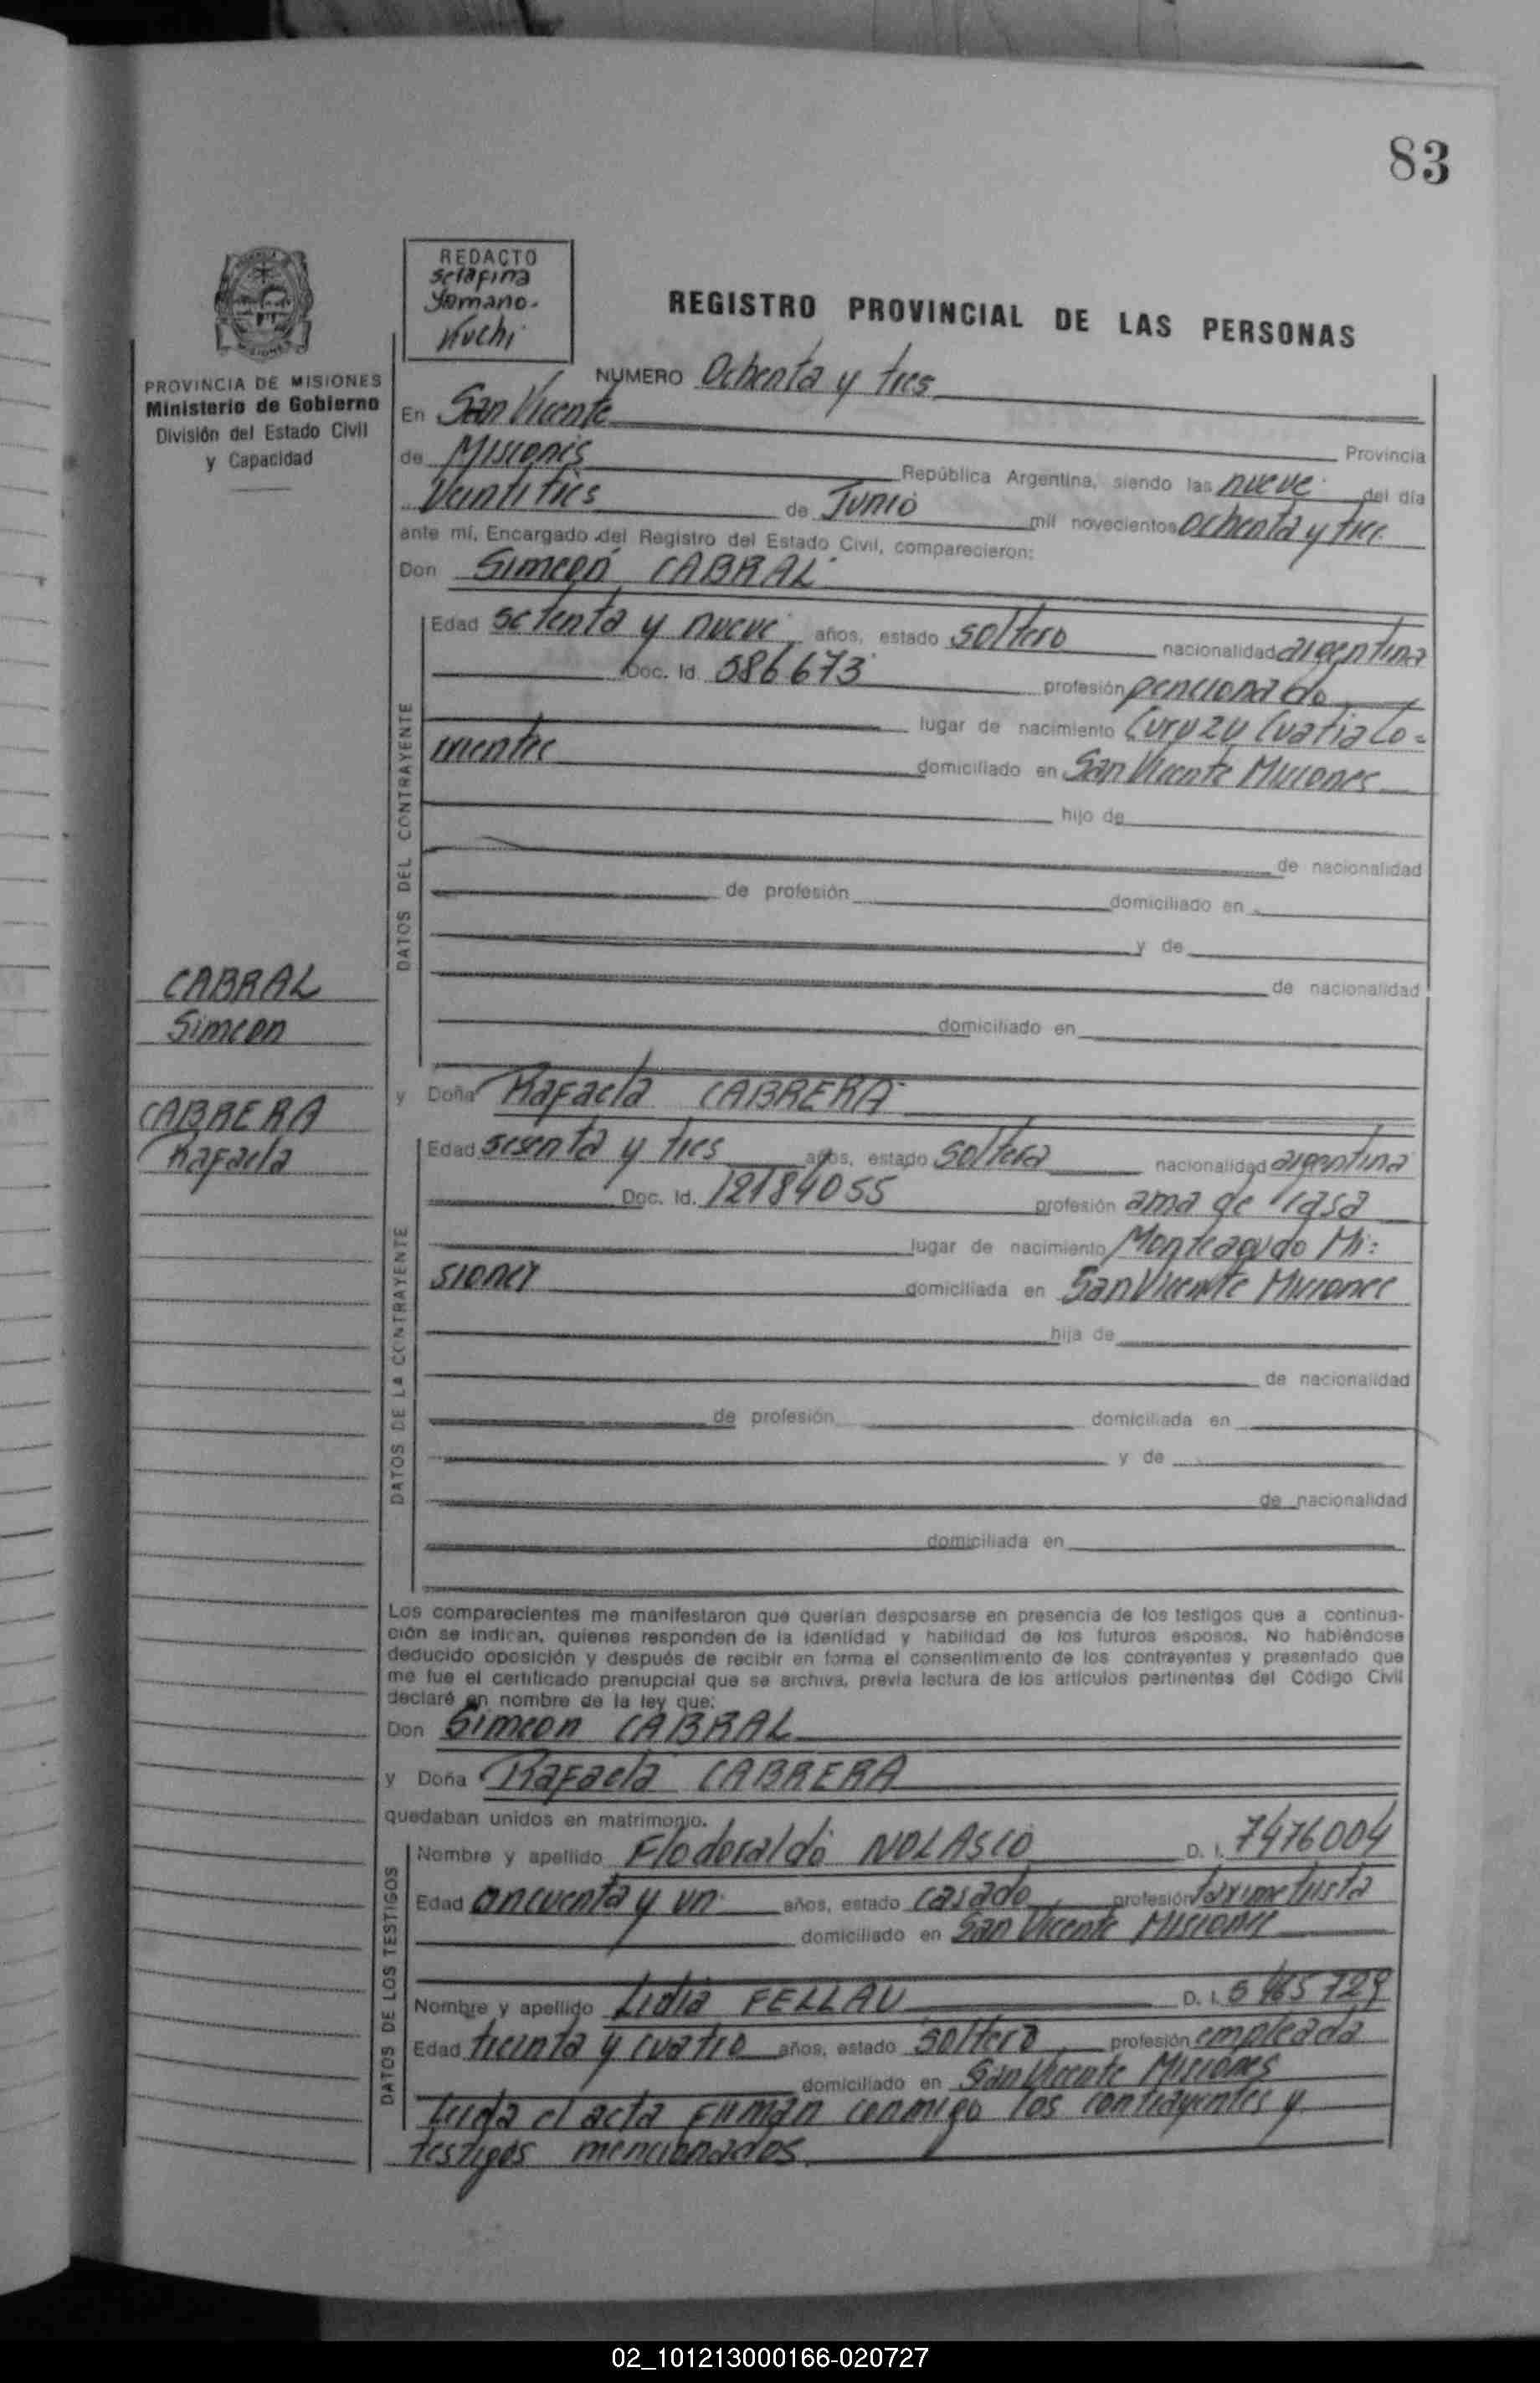 83
REDACTO
Serafina
Yamano-
Kuchi
REGISTRO PROVINCIAL DE LAS PERSONAS
PROVINCIA DE MISIONES
Ministerio de Gobierno
División del Estado Civil
y Capacidad
NUMERO Ochenta y tres
En San Vicente Provincia
de Misiones República Argentina, siendo las nueve del día
Veintitres de Junio mil novecientos ochenta y tres
ante mí, Encargado del Registro del Estado Civil, comparecieron:
Don Simeón CABRAL
Edad setenta y nueve años, estado soltero nacionalidad argentina
Doc. Id. 586673 profesión pencionado
lugar de nacimiento Curuzu Cuatia Co=
rrientes domiciliado en San Vicente Misiones
hijo de
de nacionalidad
de profesión domiciliado en
y de
de nacionalidad
domiciliado en
DATOS DEL CONTRAYENTE
CABRAL
Simeon
CABRERA
Rafaela
y Doña Rafaela CABRERA
Edad sesenta y tres años, estado soltera nacionalidad argentina
Doc. Id. 12184055 profesión ama de casa
lugar de nacimiento Monteagudo Mi=
siones domiciliada en San Vicente Misiones
hija de
de nacionalidad
de profesión domiciliada en
y de
de nacionalidad
domiciliada en
DATOS DE LA CONTRAYENTE
Los comparecientes me manifestaron que querían desposarse en presencia de los testigos que a continua-
ción se indican, quienes responden de la identidad y habilidad de los futuros esposos. No habiéndose
deducido oposición y después de recibir en forma el consentimiento de los contrayentes y presentado que
me fue el certificado prenupcial que se archiva, previa lectura de los artículos pertinentes del Código Civil
declaré en nombre de la ley que:
Don Simeon CABRAL
y Doña Rafaela CABRERA
quedaban unidos en matrimonio.
Nombre y apellido Floderaldo NOLASCO D. I. 7476004
Edad cincuenta y un años, estado casado profesión taximetrista
domiciliado en San Vicente Misiones
Nombre y apellido Lidia FELLAU D. I.
Edad treinta y cuatro años, estado soltera profesión empleada
domiciliado en San Vicente Misiones
DATOS DE LOS TESTIGOS
Leida el acta firman conmigo los contrayentes y
testigos mencionados.
02_101213000166-020727